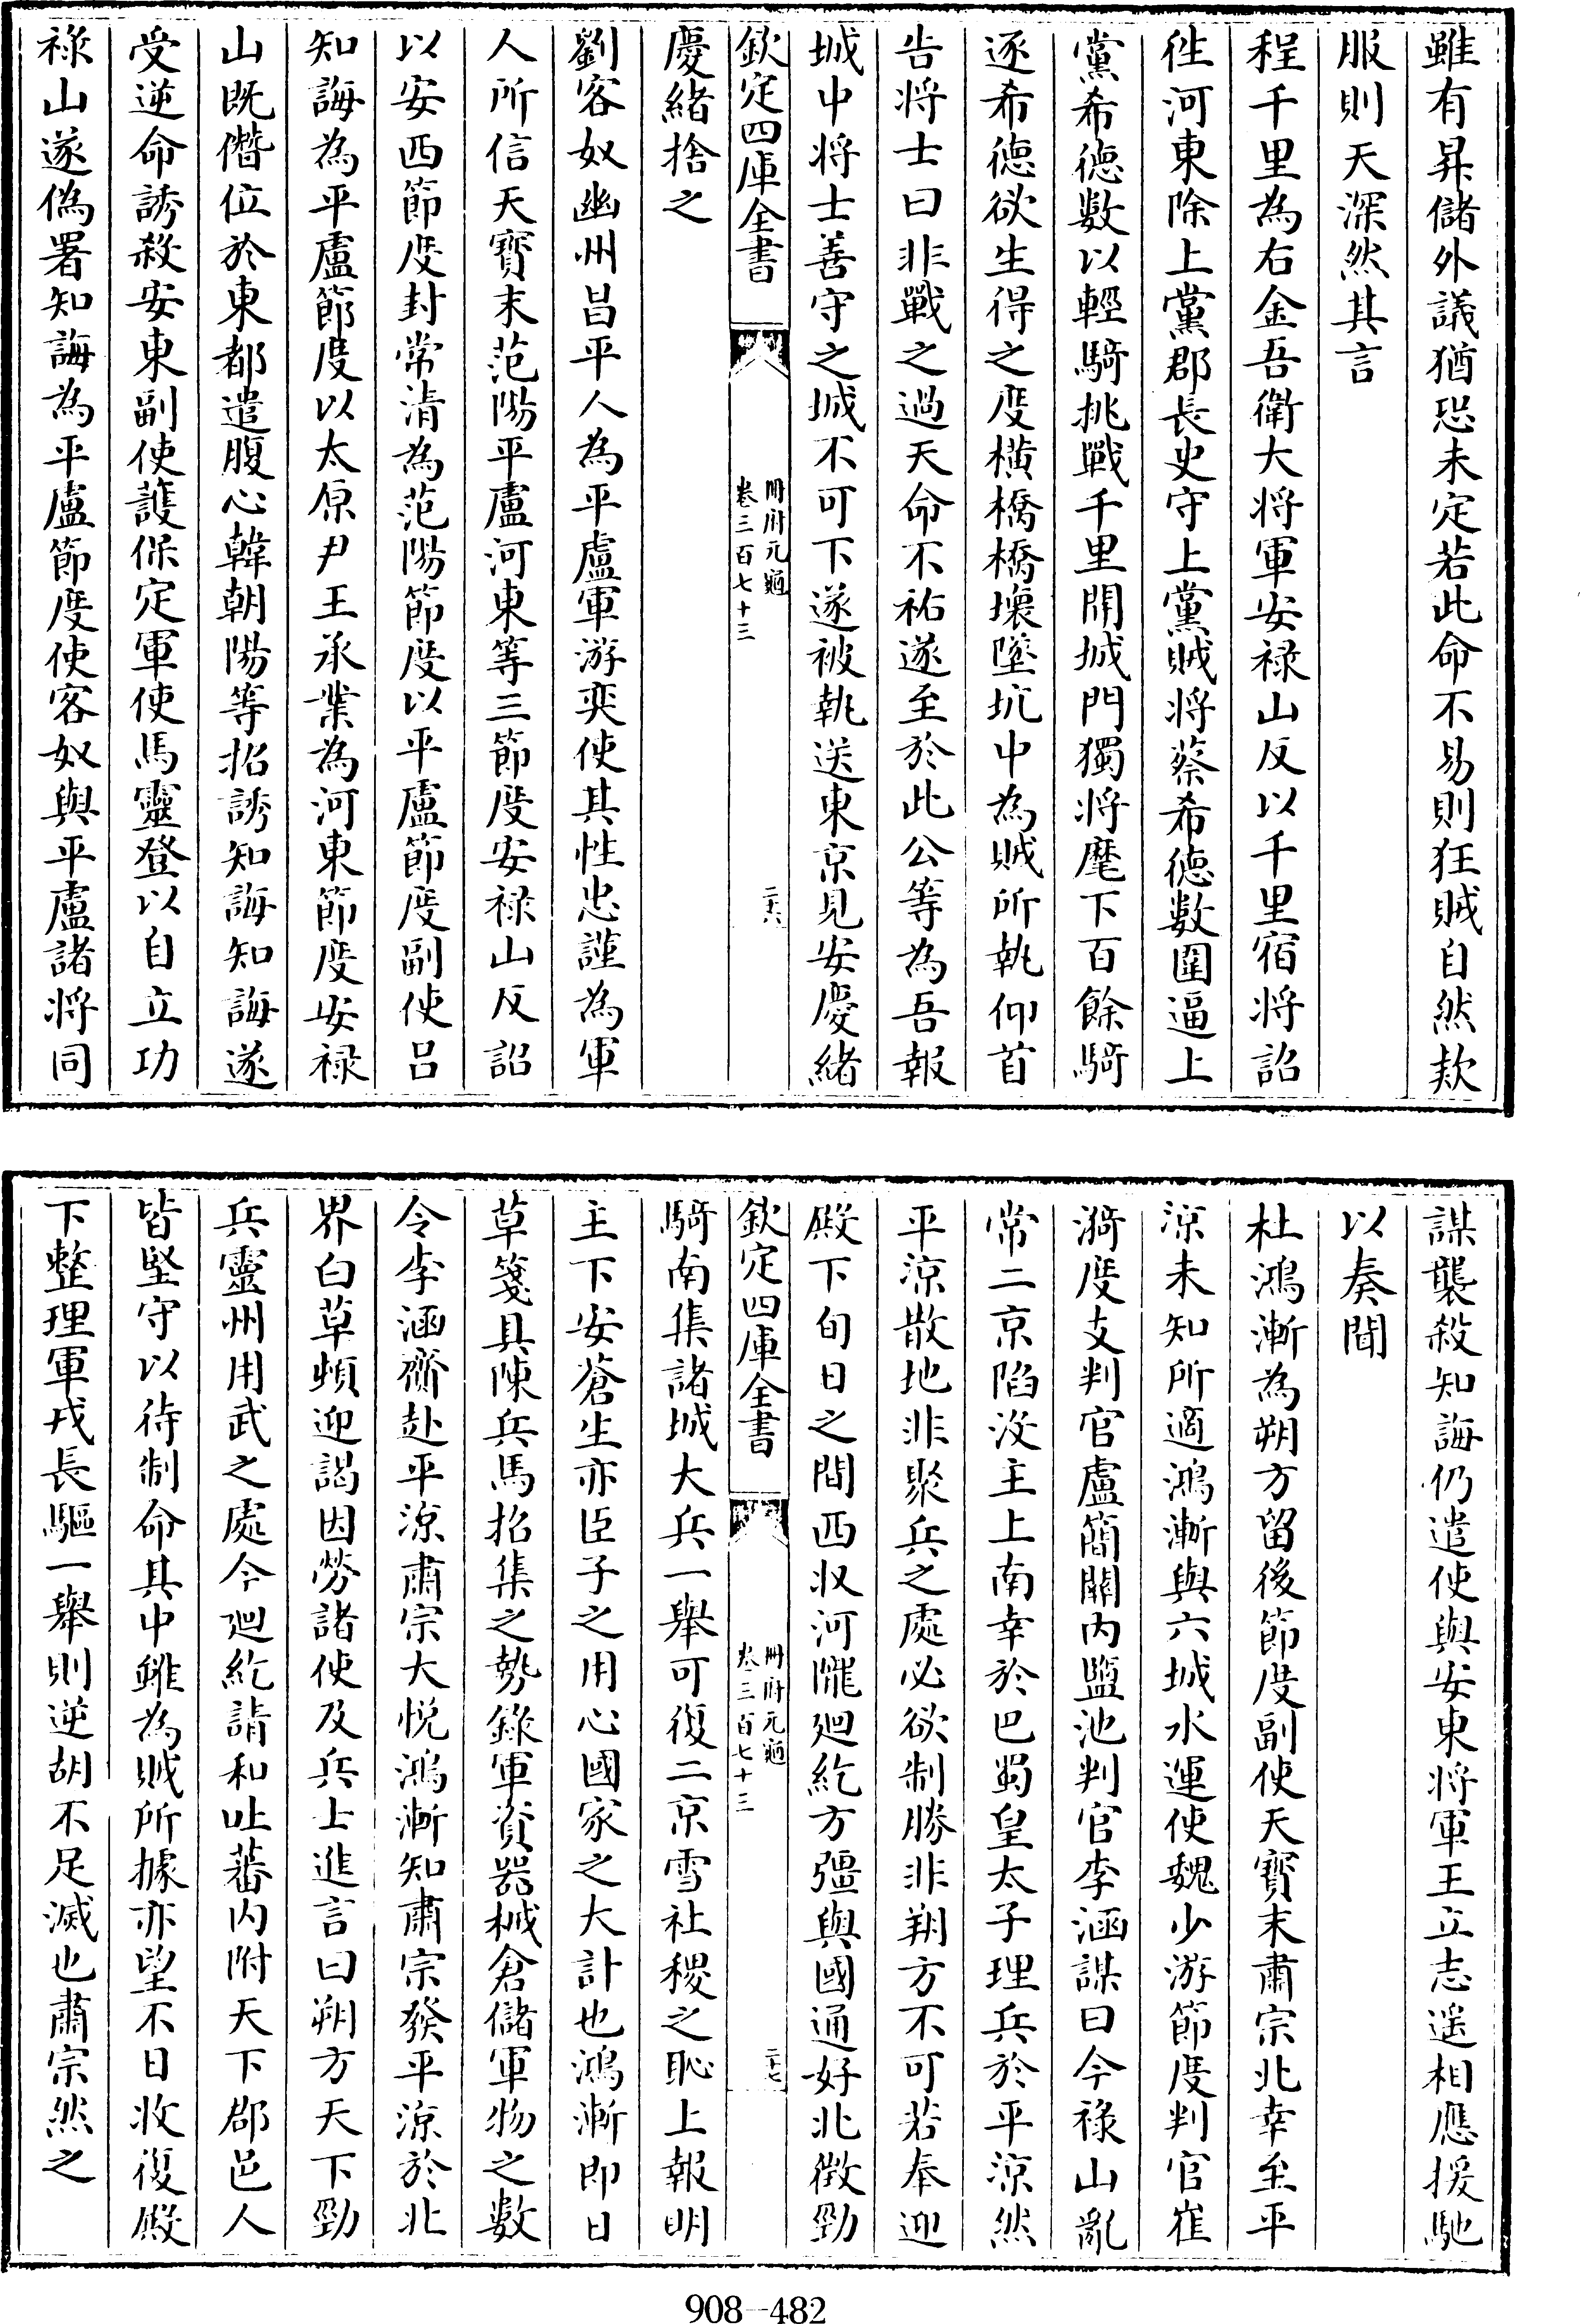 雖有昇儲外議猶恐未定若此命不易則狂賊自然欵
服則天深然其言
程千里為右金吾衛大将軍安禄山反以千里宿将詔
徃河東除上黨郡長史守上黨賊将蔡希徳數圍逼上
黨希徳數以輕騎挑戰千里開城門獨将麾下百餘騎
逐希徳欲生得之度橫橋橋壊墜坑中為賊所執仰首
告将士曰非戰之過天命不祐遂至於此公等為吾報
城中将士善守之城不可下遂被執送東京見安慶緒
欽定四庫全書 冊府元龜 卷三百七十三 二十六
慶緒捨之
劉客奴幽州昌平人為平盧軍游奕使其性忠謹為軍
人所信天寳末范陽平盧河東等三節度安禄山反詔
以安西節度封常清為范陽節度以平盧節度副使吕
知誨為平盧節度以太原尹王承業為河東節度安禄
山既僭位於東都遣腹心韓朝陽等招誘知誨知誨遂
受逆命誘殺安東副使䕶保定軍使馬靈詧以自立功
禄山遂偽署知誨為平盧節度使客奴與平盧諸将同
謀襲殺知誨仍遣使與安東将軍王立志遥相應援馳
以奏聞
杜鴻漸為朔方留後節度副使天寳末肅宗北幸至平
涼未知所適鴻漸與六城水運使魏少游節度判官崔
漪度支判官盧簡關内鹽池判官李涵謀曰今禄山亂
常二京陷没主上南幸於巴蜀皇太子理兵於平涼然
平涼散地非聚兵之處必欲制勝非朔方不可若奉迎
殿下旬日之間西収河隴廻紇方彊與國通好北徴勁
欽定四庫全書 冊府元龜 卷三百七十三 二十七
騎南集諸城大兵一舉可復二京雪社稷之恥上報明
主下安蒼生亦臣子之用心國家之大計也鴻漸即日
草箋具陳兵馬招集之勢錄軍資器械倉儲軍物之數
令李涵齎赴平涼肅宗大悅鴻漸知肅宗發平涼於北
界白草頓迎謁因勞諸使及兵士進言曰朔方天下勁
兵靈州用武之處今廻紇請和吐蕃内附天下郡邑人
皆堅守以待制命其中雖為賊所據亦望不日收復殿
下整理軍戎長驅一舉則逆胡不足滅也肅宗然之
908—482